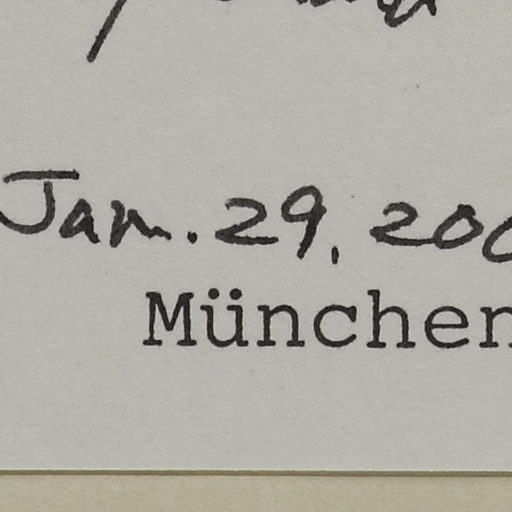 Jan. 29, 200
München